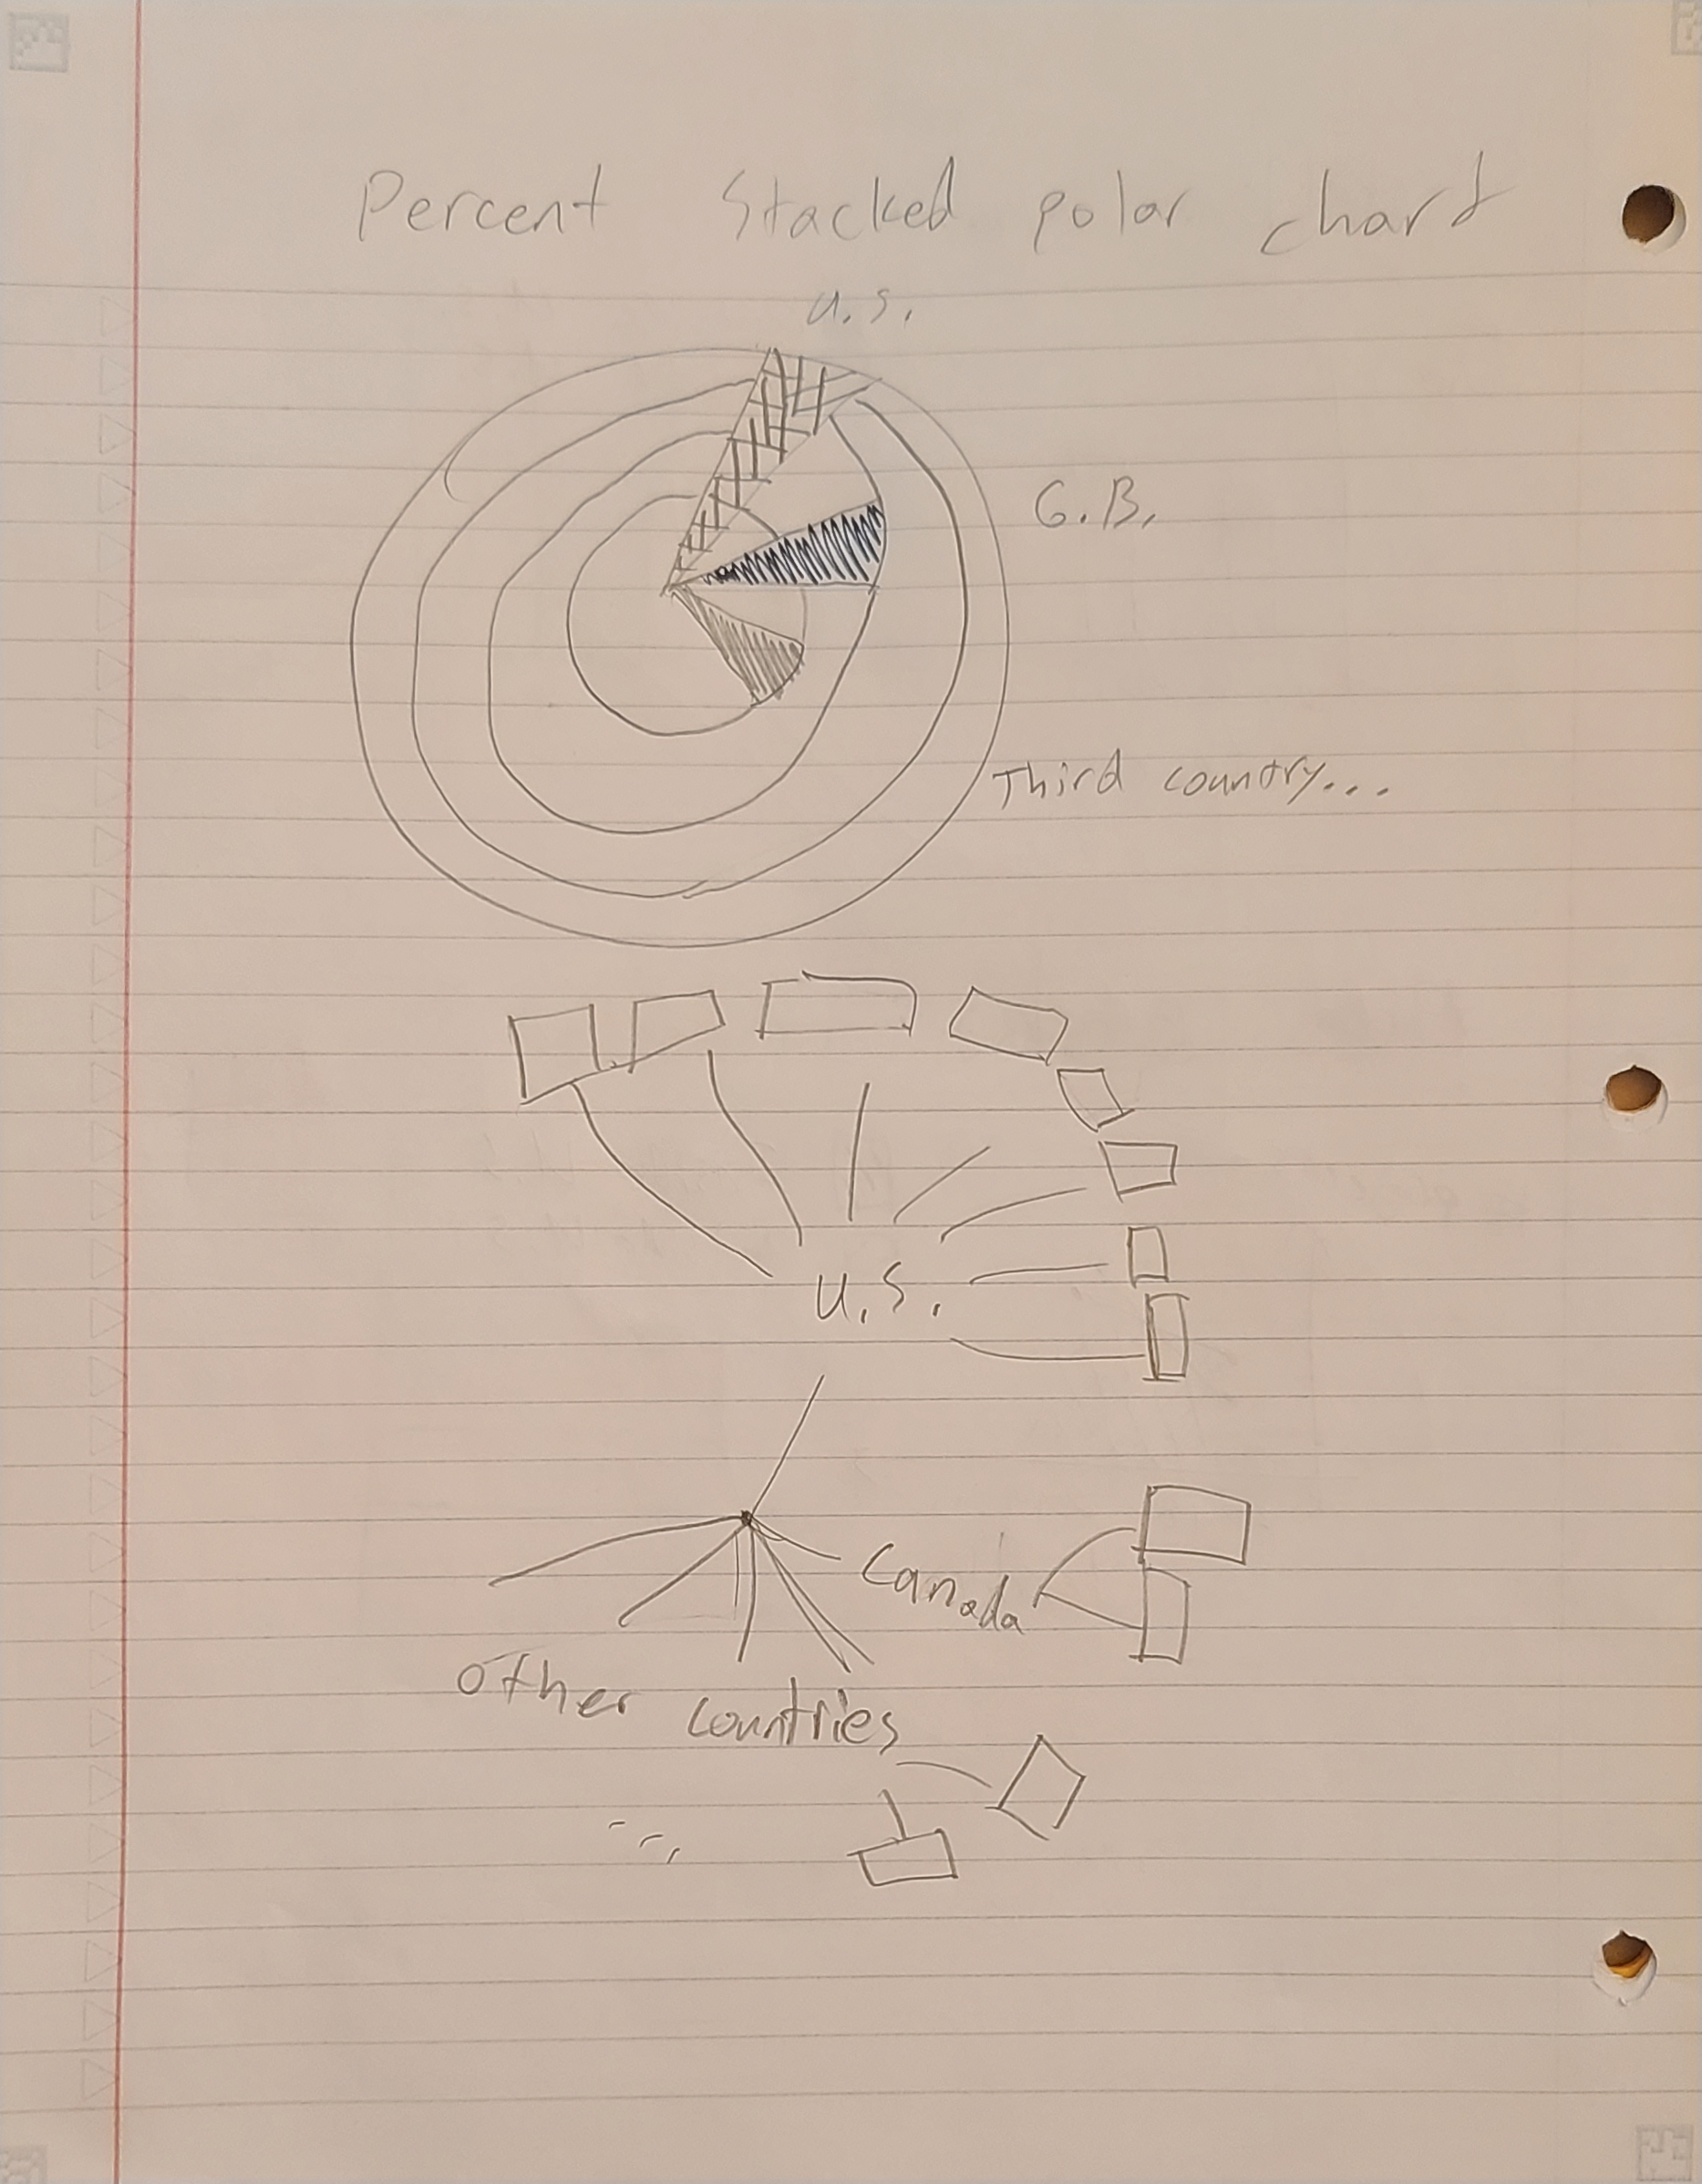 Percent Stacked polar chart
U.S.
G.B.
Third country...
U.S.
Canada
Other countries